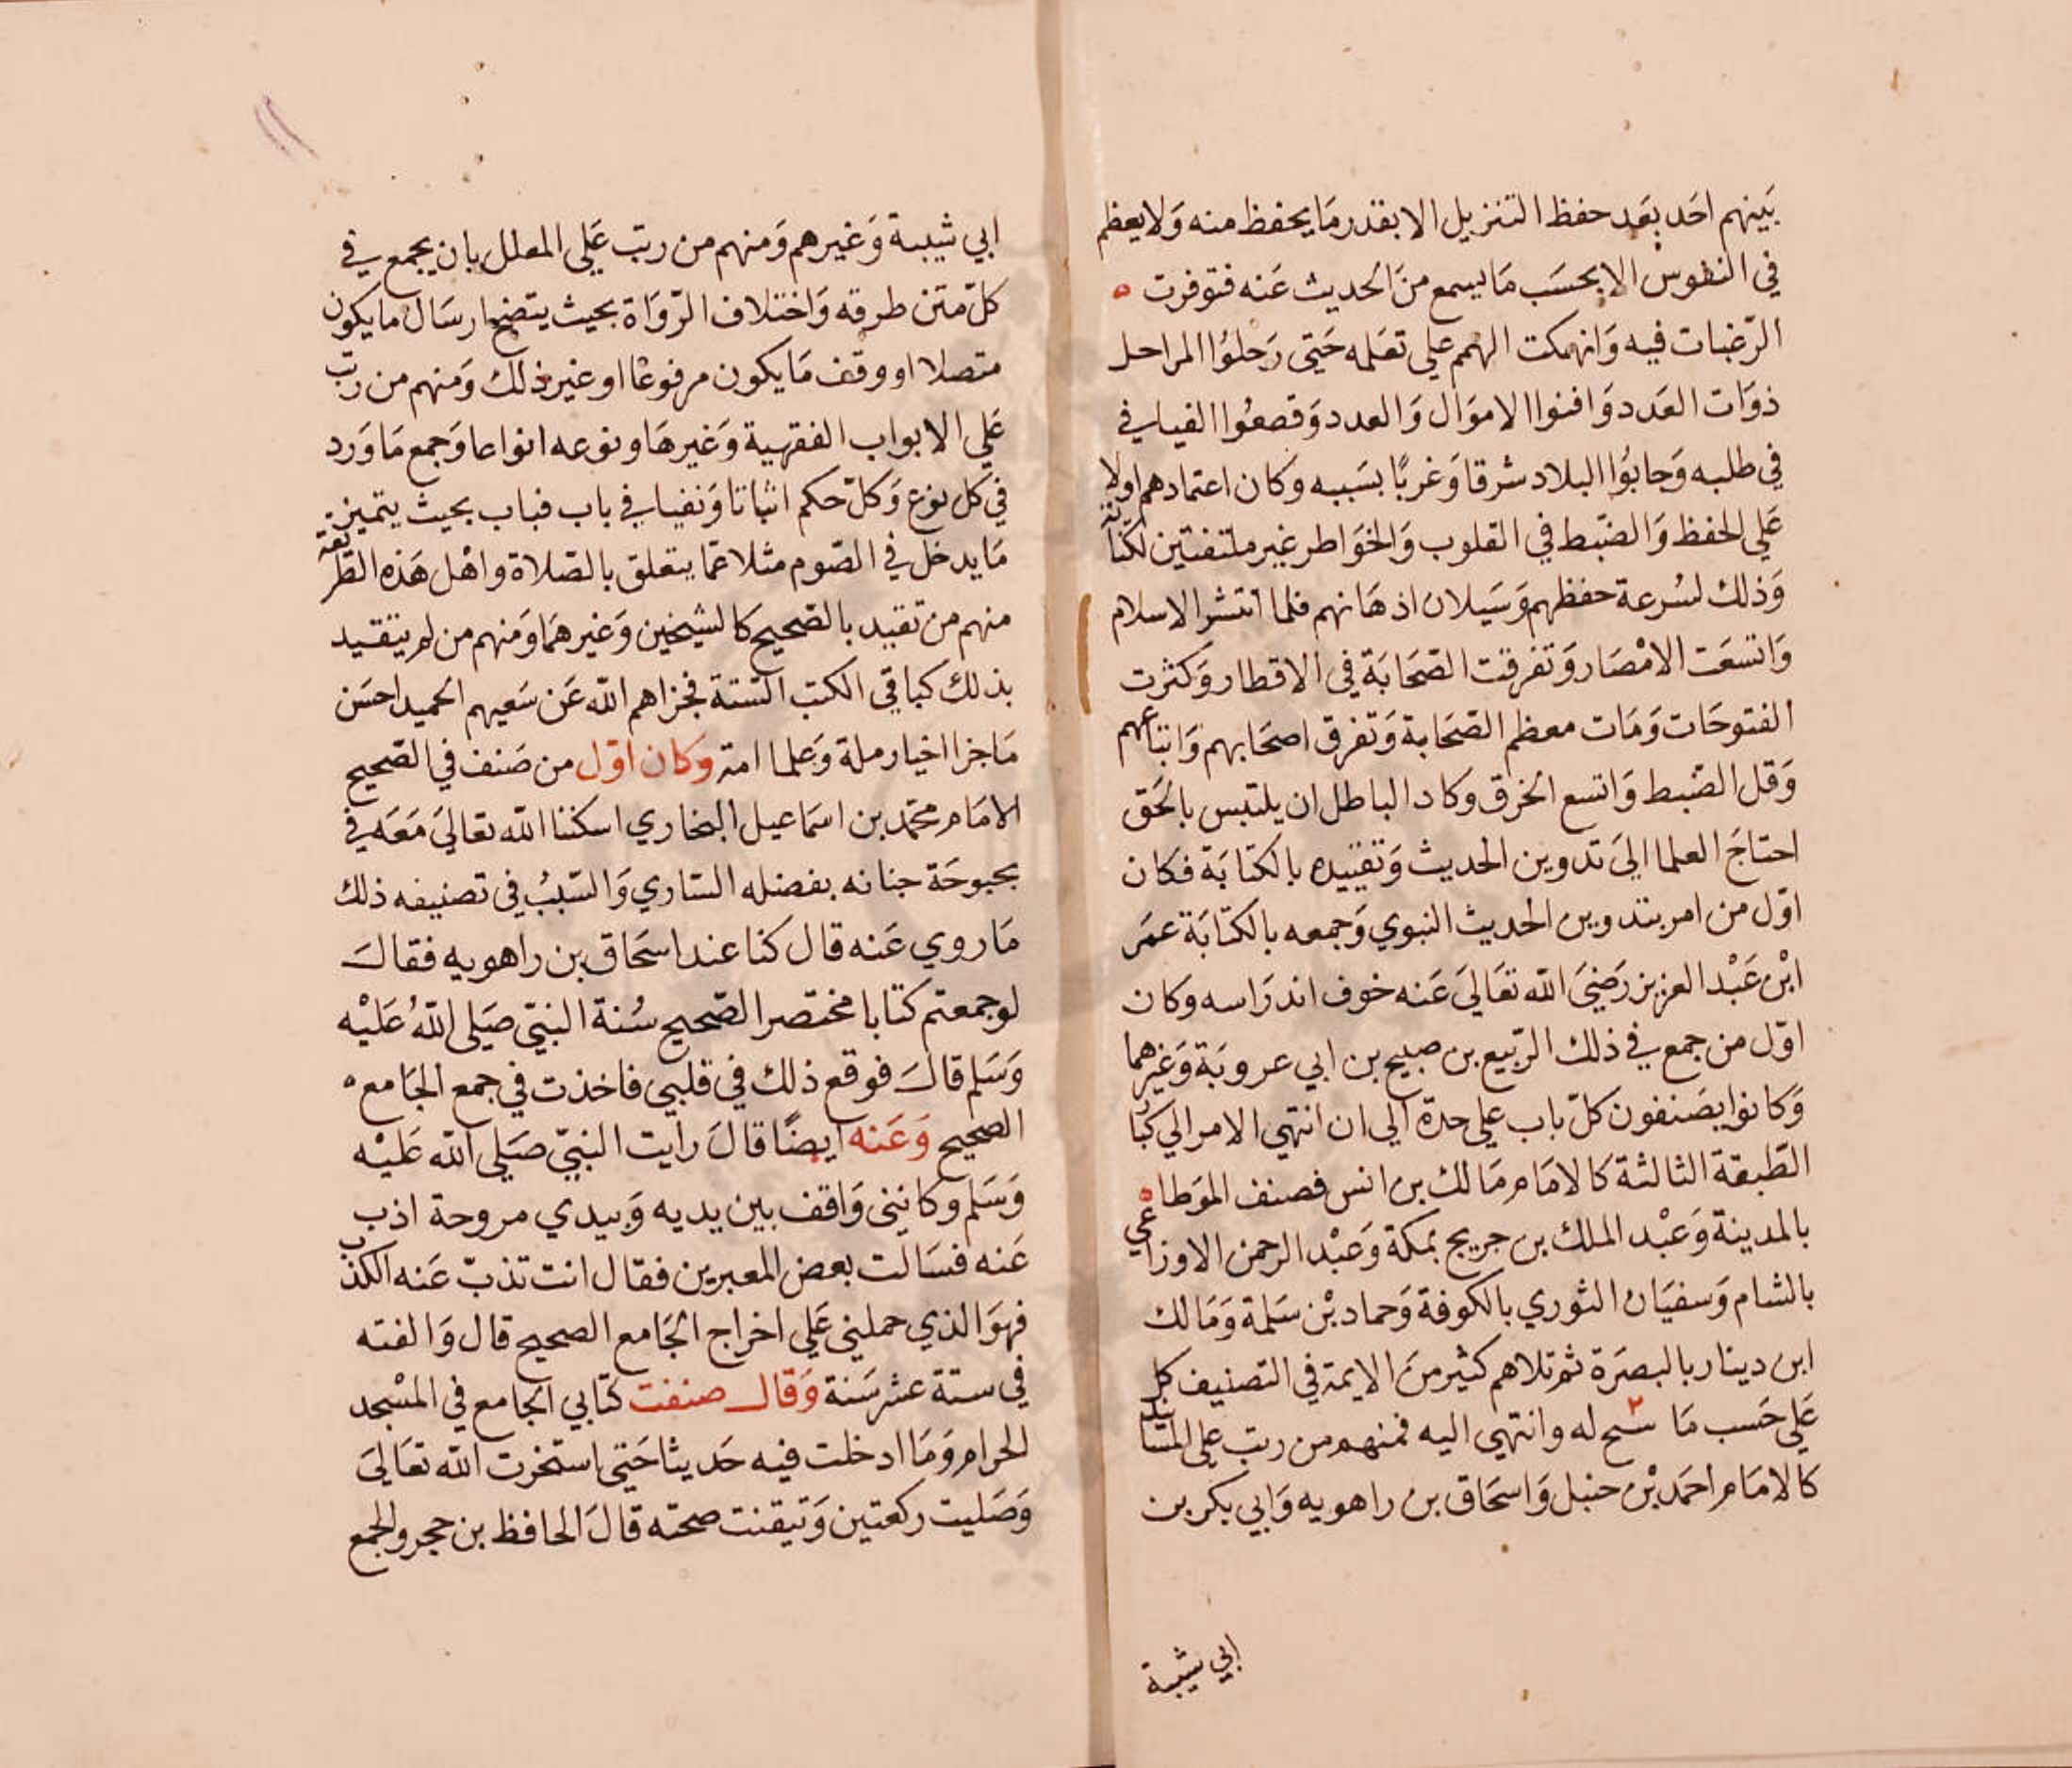 بَينهم احَد بعَد حفظ التنزيل الا بقدر مَا يحفظ منه وَلا يعظم
في النفوس الا بحسَب مَا يسمع منَ الحديث عَنه فتوفرت ه
الرّغبات فيه وَانهمكت الهمم علي تعَلمه حَتى رَحلوُا المراحل
ذوَات العَدد وَافنوا الاموَال وَالعدد وَقصعُوا الفيافي
في طلبه وَجابوُا البلاد شرقا وَغربًا بسَببه وكان اعتمادهم اولا
عَلي الحفظ وَالضّبط في القلوب وَالخوَاطر غير ملتفتين لكتابة
وَذلك لسُرعة حفظهم وَسَيلان اذهَانهم فلما انتشر الاسلام
وَاتسعَت الامْصَار وَتفرقت الصّحَابَة في الاقطار وَكثرت
الفتوحَات وَمَات معظم الصّحَابة وَتفرق اصحَابهم وَاتباعهم
وَقل الضّبط وَاتسع الخرق وكاد الباطل ان يلتبس بالحَق
احتاجَ العلما اليَ تدوين الحديث وَتقييده بالكتابَة فكان
اوّل من امر بتدوين الحديث النبوي وَجمعه بالكتابَة عمَر
ابْن عَبْد العزيز رَضيَ الله تعَاليَ عَنه خوف اندرَاسه وكان
اوّل من جمع في ذلك الرّبيع بن صبيح بن ابي عروبَة وَغيرهما
وَكانوا يصَنفون كلّ باب علي حدة الي ان انتهي الامر الي كبار
الطّبقة الثالثة كالامَام مَالك بن انس فصنف الموَطا ه
بالمدينة وَعَبْد الملك بن جريج بمَكة وَعَبْد الرحمن الاوزاعي
بالشام وَسفيَان الثوري بالكوفة وَحماد بْن سَلمة وَمَالك
ابن دينار بالبصَرة ثم تلاهم كثير منَ الايمة في التصنيف كل
عَلي حَسب مَا سنح له وانتهي اليه فمنهم من رتب علي المسَانيد
كالامَام احمَد بْن حنبل وَاسحَاق بن راهويه وَابي بكر بن
ابي شيبة
ابي شيبة وَغيرهم وَمنهم من رتب عَلي المعلل بان يجمع في
كلّ متن طرقه وَاختلاف الرّوَاة بحيث يتضح ارسَال ما يكون
متصلا او وقف مَا يكون مرفوعًا او غير ذلك وَمنهم من رتّب
عَلي الابواب الفقهية وَغيرهَا ونوعه انواعا وَجمع مَا وَرد
في كل نوع وَكلّ حكم اثباتا وَنفيا في باب فباب بحيث يتميز
مَا يدخل في الصّوم مثلا عمّا يتعلق بالصّلاة واهْل هَذه الطّريقة
منهم من تقيد بالصّحيح كالشيخين وَغيرهمَا وَمنهم من لم يتقيد
بذلك كباقي الكتب السّتة فجزاهم الله عَن سَعيهم الحميد احسَن
مَا جزا اخيار ملة وَعلما امة وَكان اوّل من صَنف في الصّحيح
الامَام محمّد بن اسمَاعيل البخاري اسكننا الله تعاليَ مَعَه في
بحبوحَة جنانه بفضله السّاري وَالسّببُ في تصنيفه ذلك
مَا روي عَنه قال كنا عند اسحَاق بن راهويه فقال
لو جمعتم كتابا مختصرا لصّحيح سُنة النبيّ صَلي اللهُ عَليْه
وَسَلم قالَ فوقع ذلك في قلبي فاخذت في جمع الجَامع ه
الصحيح وَعَنه ايضًا قالَ رايت النبيّ صَلي الله عَليْه
وَسَلم وكانني وَاقف بين يديه وَبيدي مروحة اذب
عَنه فسَالت بعض المعبرين فقال انت تذبّ عَنه الكذب
فهوَ الذي حملني عَلي اخراج الجَامع الصحيح قال وَالفته
في ستة عشر سَنة وَقال صنفت كتابي الجامع في المسْجد
الحرام وَمَا ادخلت فيه حَديثا حَتي استخرت الله تعَاليَ
وَصَليت ركعتين وَتيقنت صحته قالَ الحافظ بن حجر والجمع